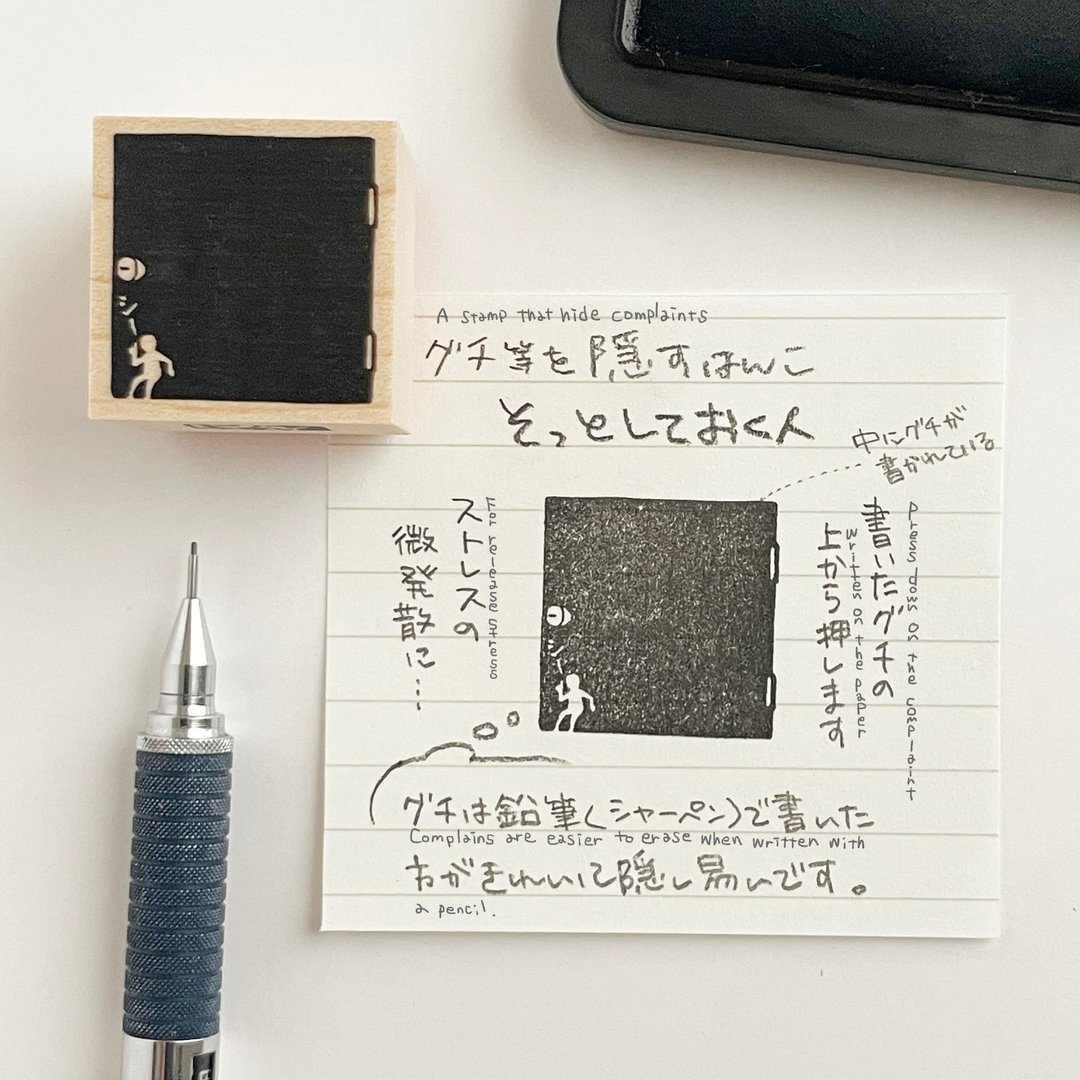 シー
A stamp that hide complaints
グチ等を隠すはんこ
そっとしておく人
中にグチが
書かれている
Press down on the complaint
書いたグチの
written on the paper
上から押します
シー
For release stress
ストレスの
微発散に…
グチは鉛筆(シャーペン)で書いた
Complains are easier to erase when written with
わがきれいに隠し易いです。
a pencil.